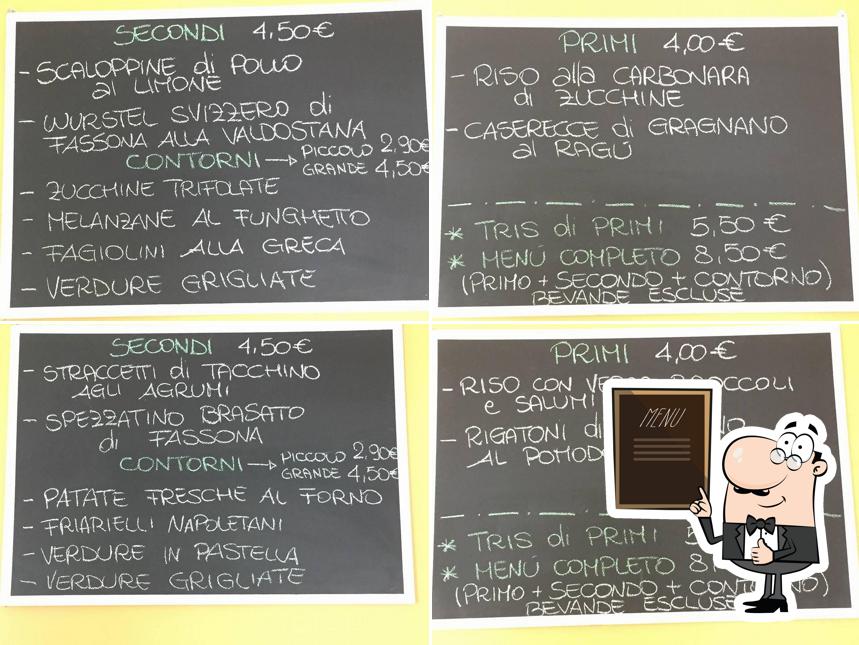 SECONDI 4,50€
- SCALOPPINE di POLLO
al LIMONE
- WURSTEL SVIZZERO di
FASSONA ALLA VALDOSTANA
CONTORNI → PICCOLO 2,90€
GRANDE 4,50€
- ZUCCHINE TRIFOLATE
- MELANZANE AL FUNGHETTO
- FAGIOLINI ALLA GRECA
- VERDURE GRIGLIATE
PRIMI 4,00€
- RISO alla CARBONARA
di ZUCCHINE
- CASERECCE di GRAGNANO
al RAGÚ
* TRIS di PRIMI 5,50€
* MENÚ COMPLETO 8,50€
(PRIMO + SECONDO + CONTORNO)
BEVANDE ESCLUSE
SECONDI 4,50€
- STRACCETTI di TACCHINO
AGLI AGRUMI
- SPEZZATINO BRASATO
di FASSONA
CONTORNI → PICCOLO 2,90€
GRANDE 4,50€
- PATATE FRESCHE AL FORNO
- FRIARIELLI NAPOLETANI
- VERDURE IN PASTELLA
- VERDURE GRIGLIATE
PRIMI 4,00€
- RISO CON
e SALUMI
- RIGATONI di
AL
MENU
* TRIS di PRIMI
* MENÚ COMPLETO
(PRIMO + SECONDO +
BEVANDE ESCLUSE